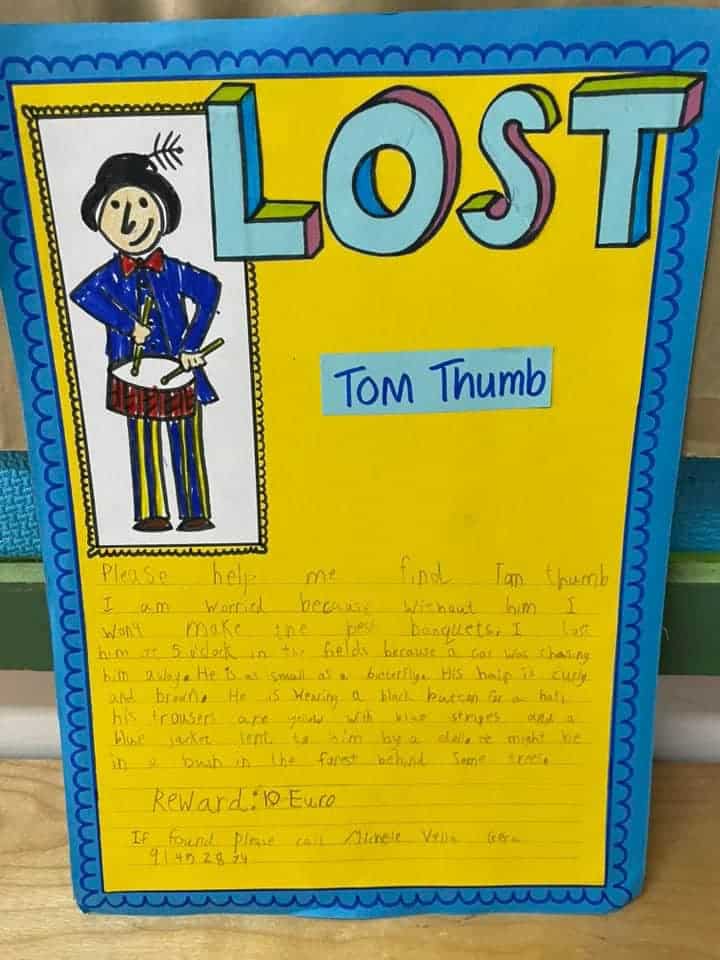 LOST
TOM Thumb
Please help me find Tom thumb
I am worried because without him I
wont make the best banquets. I lost
him at 5 o'clock in the fields because a cat was chasing
him away. He is as small as a butterfly. His hair is curly
and brown. He is wearing a black button for a hat.
his trousers are yellow with blue stripes and a
blue jacket lent to him by a doll. He might be
in a bush in the forest behind some trees.
Reward: 10 Euro
If found please call Michele Vella
91 45 28 74